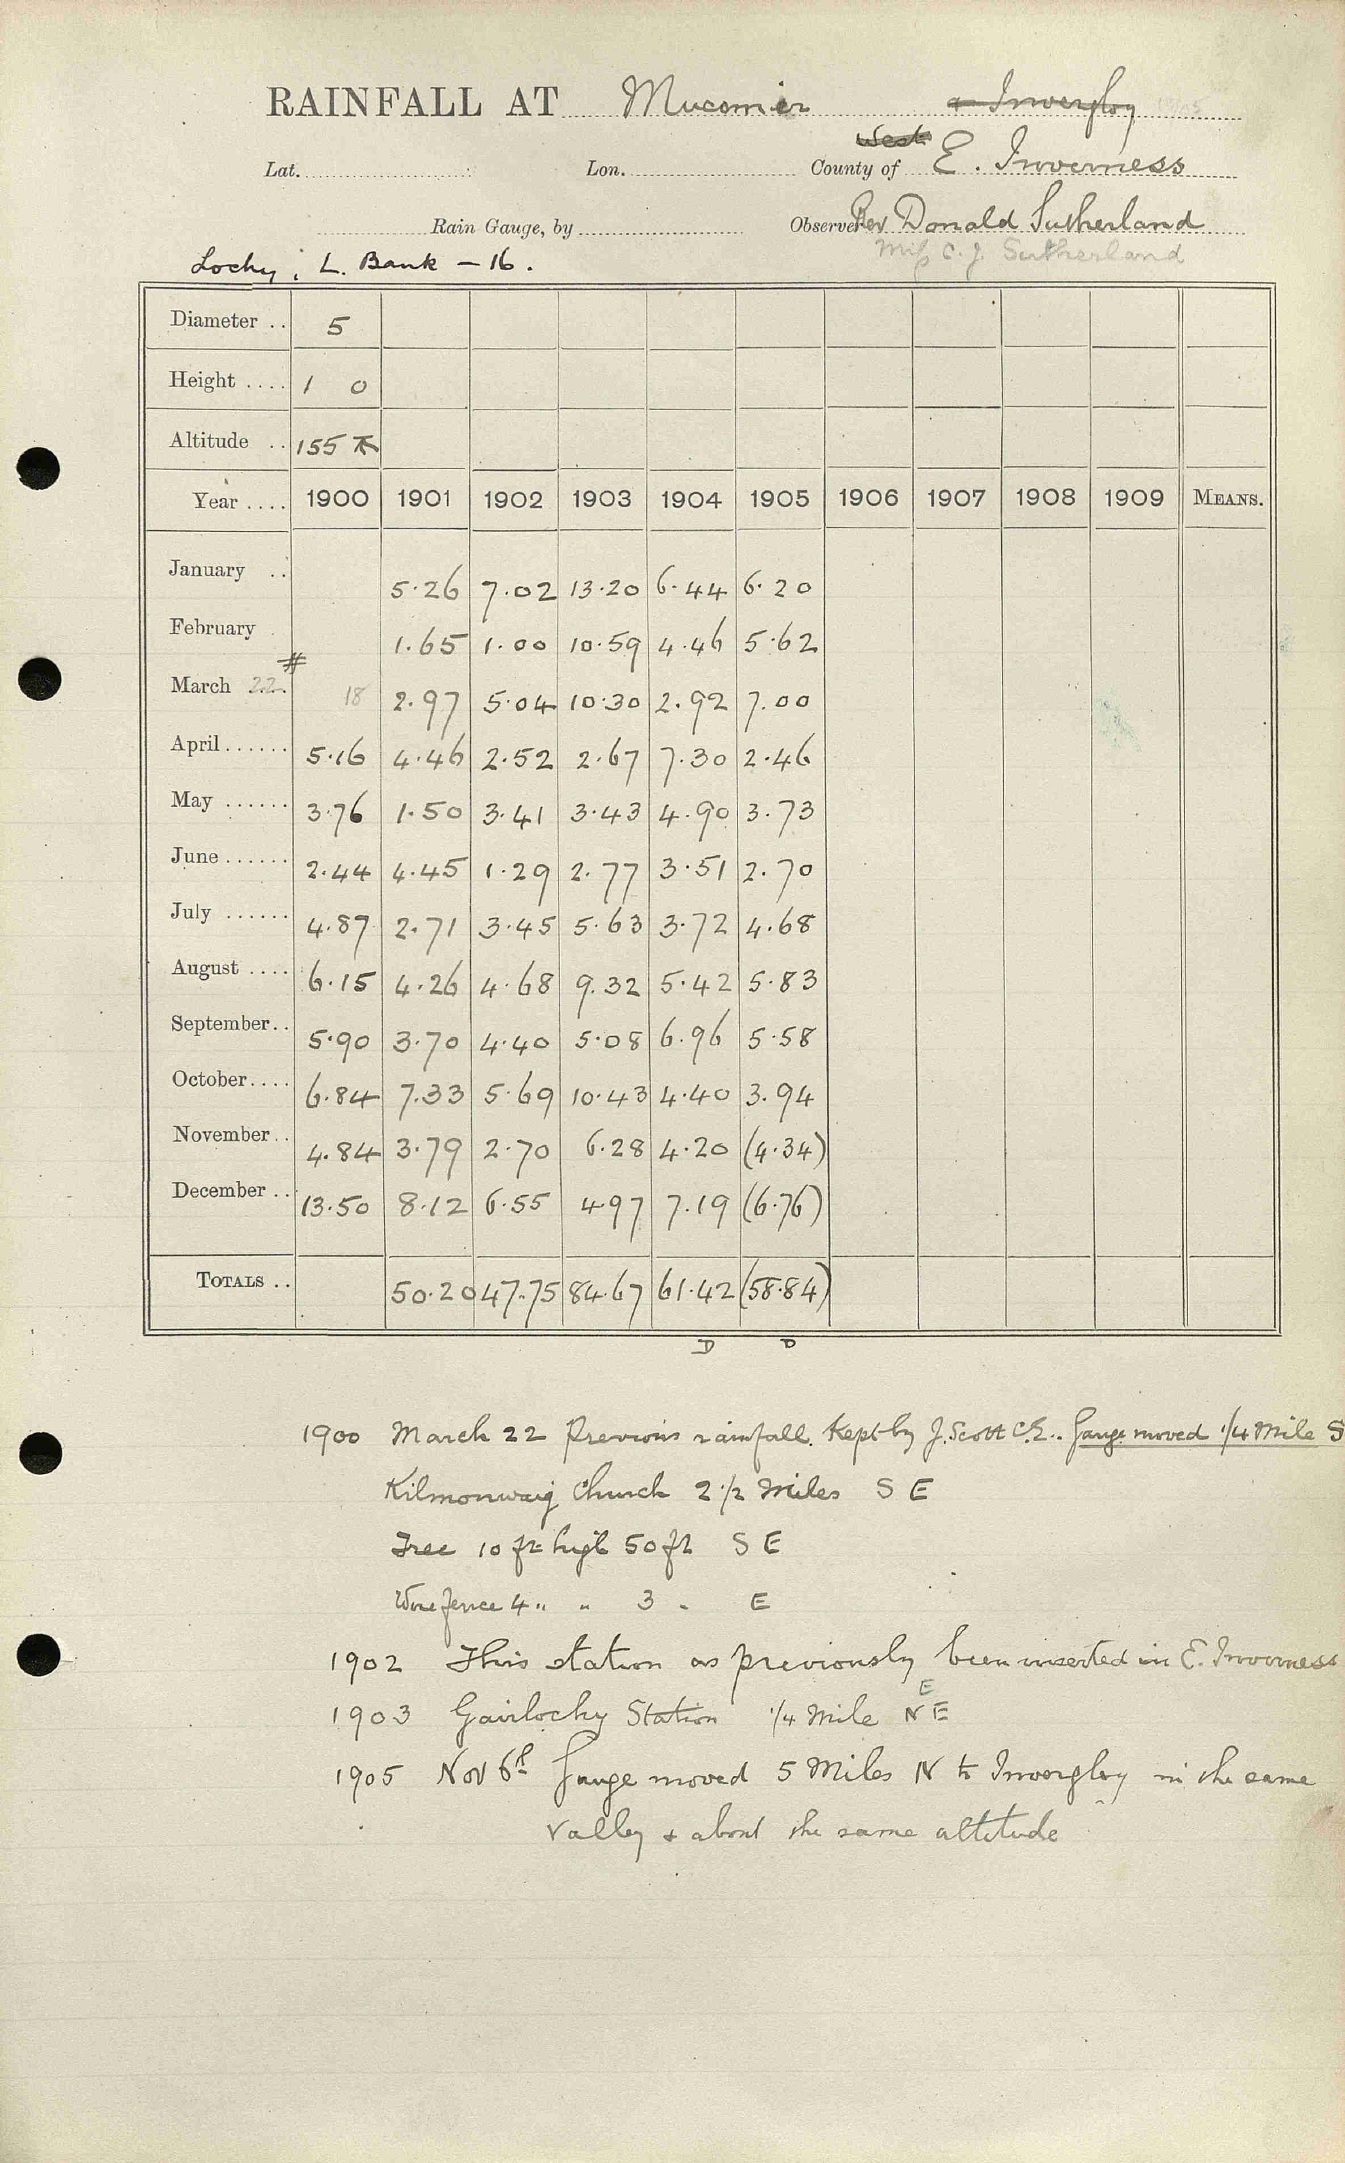 RAINFALL AT Mucomir + Invergloy
West
Lat. Lon. County of E. Inverness
Rain Gauge, by Observer Rev Donald Sutherland
Miss C. J. Sutherland
Lochy; L. Bank – 16.
Diameter .. 5
Height .... 1 0
Altitude .. 155
Year .... 1900 1901 1902 1903 1904 1905 1906 1907 1908 1909 MEANS.
January .. 5.26 7.02 13.20 6.44 6.20
February 1.65 1.00 10.59 4.46 5.62
#
March 22 18 2.97 5.04 10.30 2.92 7.00
April ...... 5.16 4.46 2.52 2.67 7.30 2.46
May ...... 3.76 1.50 3.41 3.43 4.90 3.73
June ...... 2.44 4.45 1.29 2.77 3.51 2.70
July ...... 4.87 2.71 3.45 5.63 3.72 4.68
August .... 6.15 4.26 4.68 9.32 5.42 5.83
September.. 5.90 3.70 4.40 5.08 6.96 5.58
October.... 6.84 7.33 5.69 10.43 4.40 3.94
November.. 4.84 3.79 2.70 6.28 4.20 (4.34)
December .. 13.50 8.12 6.55 4.97 7.19 (6.76)
TOTALS .. 50.20 47.75 84.67 61.42 (58.84)
D D
1900 March 22 Previous rainfall kept by J. Scott C.E.. Gauge moved 1/4 Mile S
Kilmonwaig Church 2 1/2 Miles S E
Tree 10 ft high 50 ft S E
Wire fence 4 " " 3 " E
1902 This station as previously been inserted in E. Inverness
E
1903 Gairlochy Station 1/4 Mile N E
1905 Nov 6th Gauge moved 5 Miles N to Invergloy in the same
valley + about the same altitude